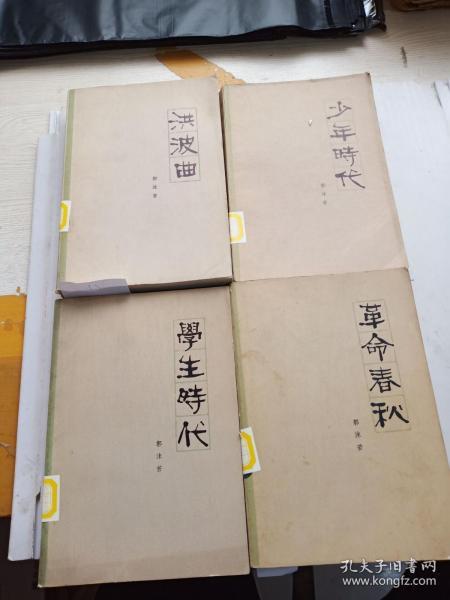 洪波曲
郭沫若
少年時代
郭沫若
學生時代
郭沫若
革命春秋
郭沫若
孔夫子旧书网
www.kongfz.com